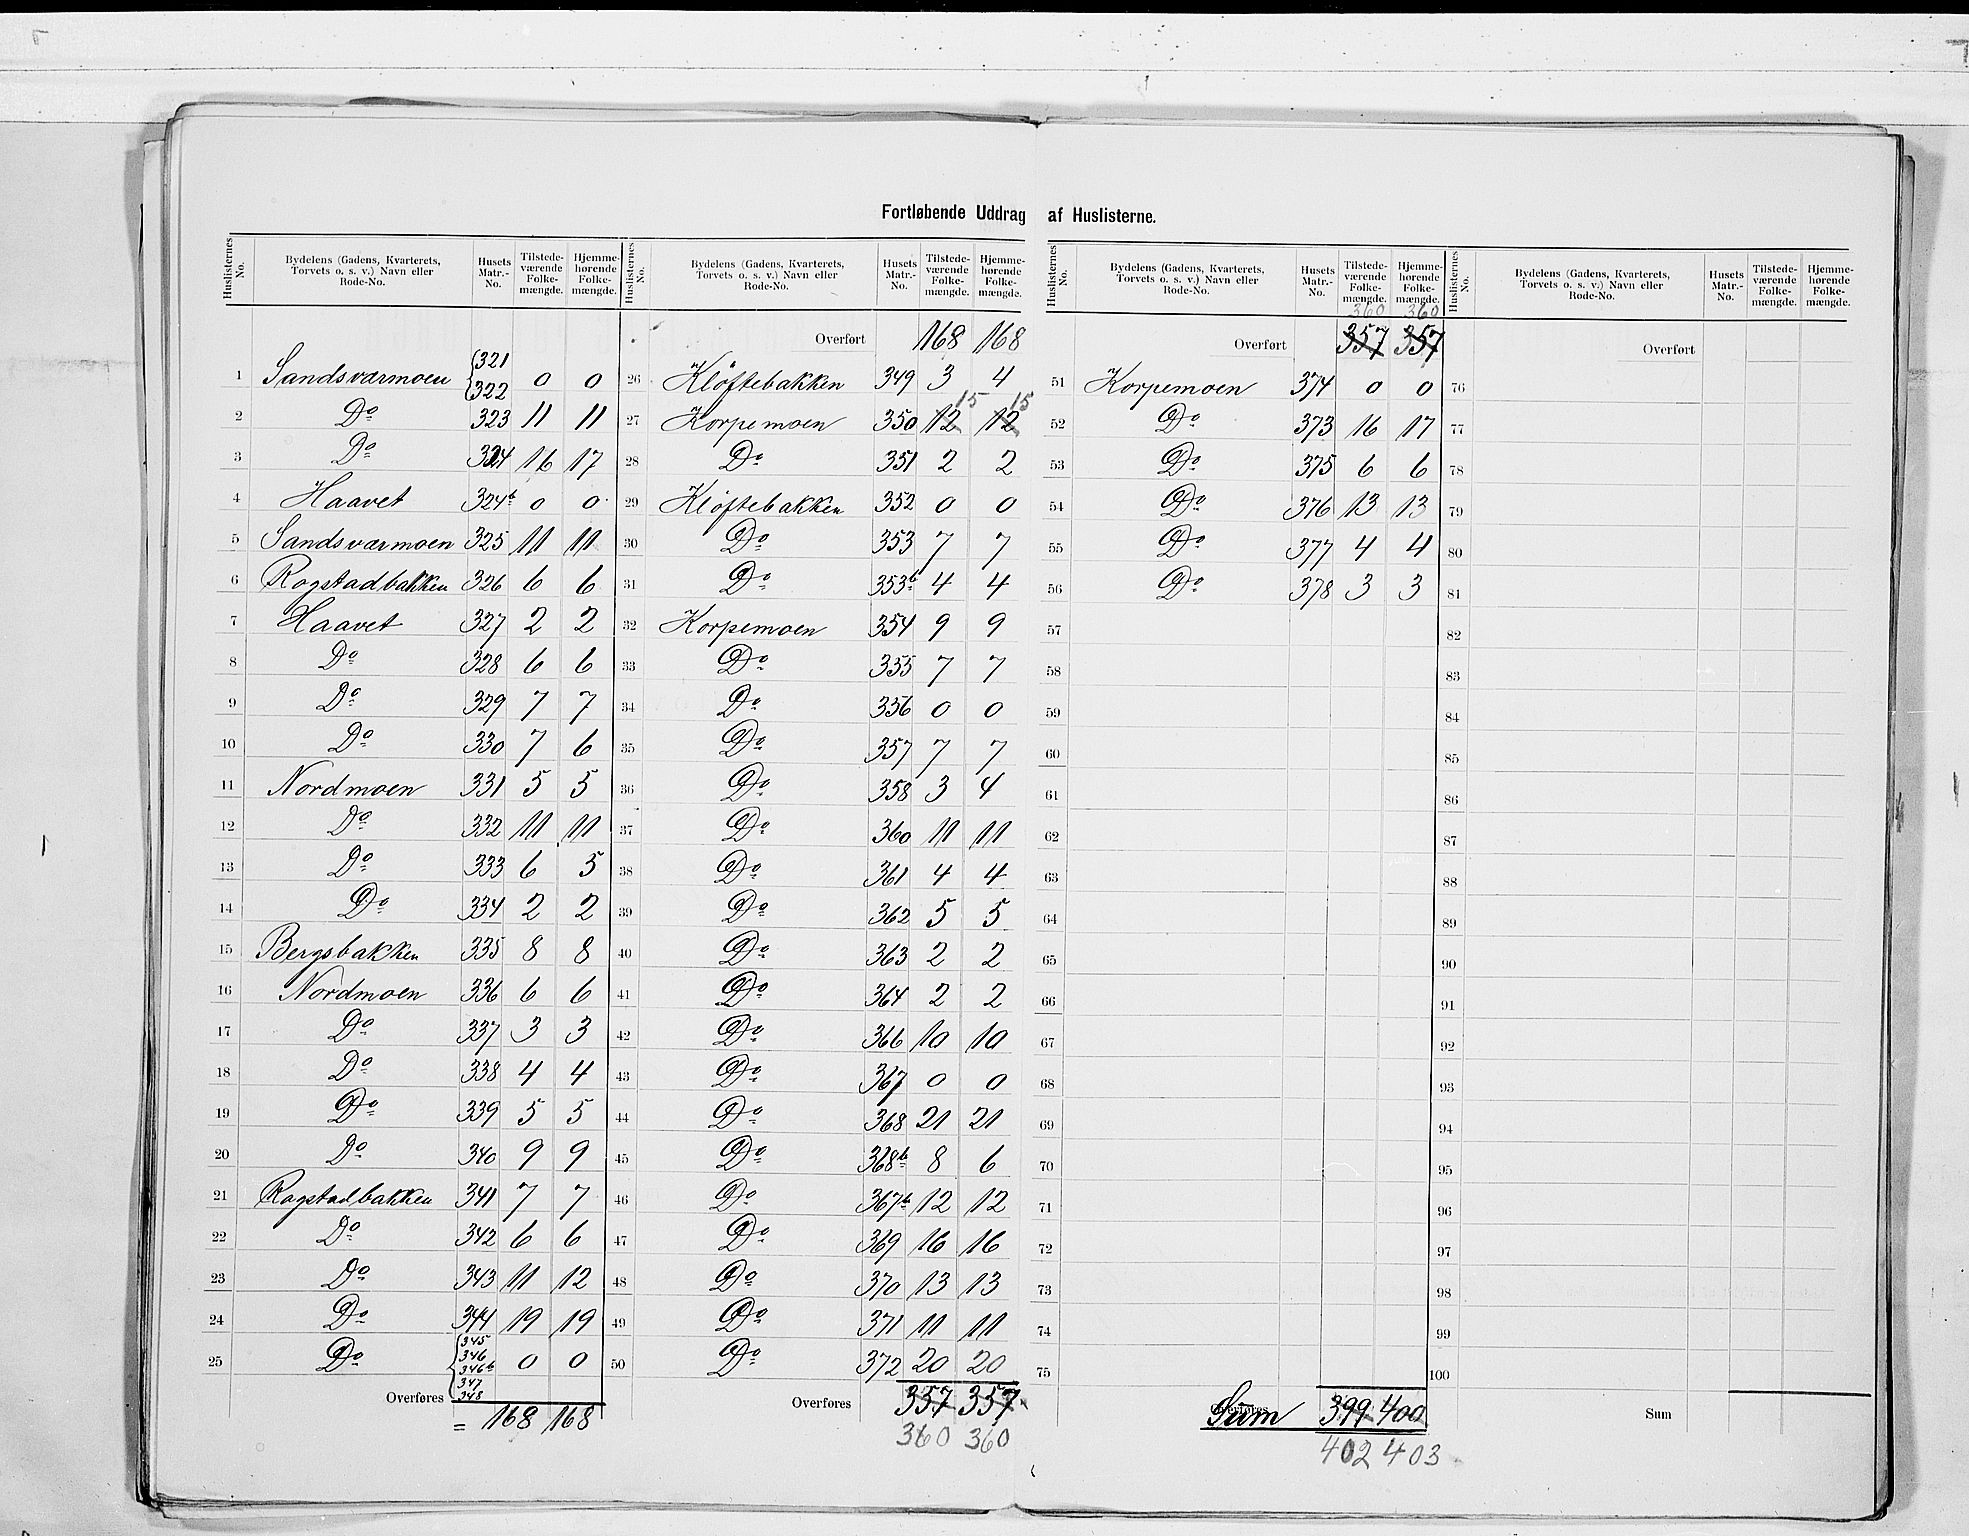 Fortløbende Uddrag af Huslisterne.
Huslisternes No. Bydelens (Gadens, Kvarterets, Torvets o. s. v.) Navn eller Rode-No. Husets Matr.-No. Tilstede-værende Folke-mængde. Hjemme-hørende Folke-mængde.
1 Sandsværmoen {321 {322 0 0
2 Do 323 11 11
3 Do 324 16 17
4 Haavet 324b 0 0
5 Sandsværmoen 325 11 11
6 Rogstadbakken 326 6 6
7 Haavet 327 2 2
8 Do 328 6 6
9 Do 329 7 7
10 Do 330 7 6
11 Nordmoen 331 5 5
12 Do 332 11 11
13 Do 333 6 5
14 Do 334 2 2
15 Bergsbakken 335 8 8
16 Nordmoen 336 6 6
17 Do 337 3 3
18 Do 338 4 4
19 Do 339 5 5
20 Do 340 9 9
21 Rogstadbakken 341 7 7
22 Do 342 6 6
23 Do 343 11 12
24 Do 344 19 19
25 Do {345 346 346b 347 348 0 0
Overføres = 168 168
Huslisternes No. Bydelens (Gadens, Kvarterets, Torvets o. s. v.) Navn eller Rode-No. Husets Matr.-No. Tilstede-værende Folke-mængde. Hjemme-hørende Folke-mængde.
Overført 168 168
26 Kløftebakken 349 3 4
27 Korpemoen 350 12 15 12 15
28 Do 351 2 2
29 Kløftebakken 352 0 0
30 Do 353 7 7
31 Do 353b 4 4
32 Korpemoen 354 9 9
33 Do 355 7 7
34 Do 356 0 0
35 Do 357 7 7
36 Do 358 3 4
37 Do 360 11 11
38 Do 361 4 4
39 Do 362 5 5
40 Do 363 2 2
41 Do 364 2 2
42 Do 366 10 10
43 Do 367 0 0
44 Do 368 21 21
45 Do 368b 8 6
46 Do 367b 12 12
47 Do 369 16 16
48 Do 370 13 13
49 Do 371 11 11
50 Do 372 20 20
Overføres 357 357
360 360
Huslisternes No. Bydelens (Gadens, Kvarterets, Torvets o. s. v.) Navn eller Rode-No. Husets Matr.-No. Tilstede-værende Folke-mængde. Hjemme-hørende Folke-mængde.
360 360
Overført 357 357
51 Korpemoen 374 0 0
52 Do 373 16 17
53 Do 375 6 6
54 Do 376 13 13
55 Do 377 4 4
56 Do 378 3 3
57
58
59
60
61
62
63
64
65
66
67
68
69
70
71
72
73
74
75
Overføres Sum 399 400
402 403
Huslisternes No. Bydelens (Gadens, Kvarterets, Torvets o. s. v.) Navn eller Rode-No. Husets Matr.-No. Tilstede-værende Folke-mængde. Hjemme-hørende Folke-mængde.
Overført
76
77
78
79
80
81
82
83
84
85
86
87
88
89
90
91
92
93
94
95
96
97
98
99
100
Sum